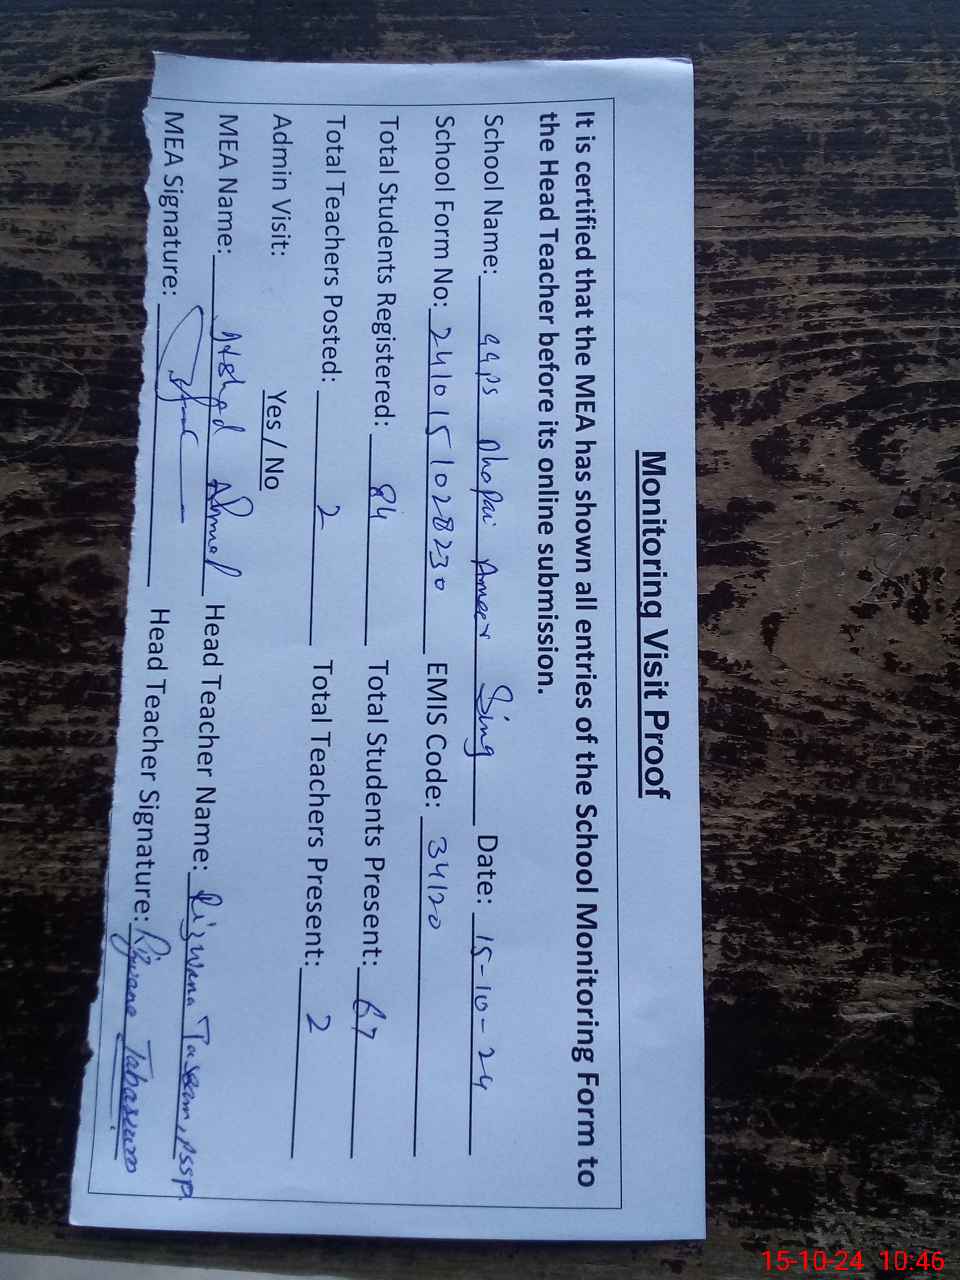 Monitoring Visit Proof
It is certified that the MEA has shown all entries of the School Monitoring Form to
the Head Teacher before its online submission.
School Name: GGPS Dhopai Ameer Sing Date: 15-10-24
School Form No: 2410151028230 EMIS Code: 34120
Total Students Registered: 84 Total Students Present: 67
Total Teachers Posted: 2 Total Teachers Present: 2
Admin Visit: Yes / No
MEA Name: Ahmed Head Teacher Name: Rizwana
MEA Signature: Head Teacher Signature: Rizwana Tabassum
15-10-24 10:46